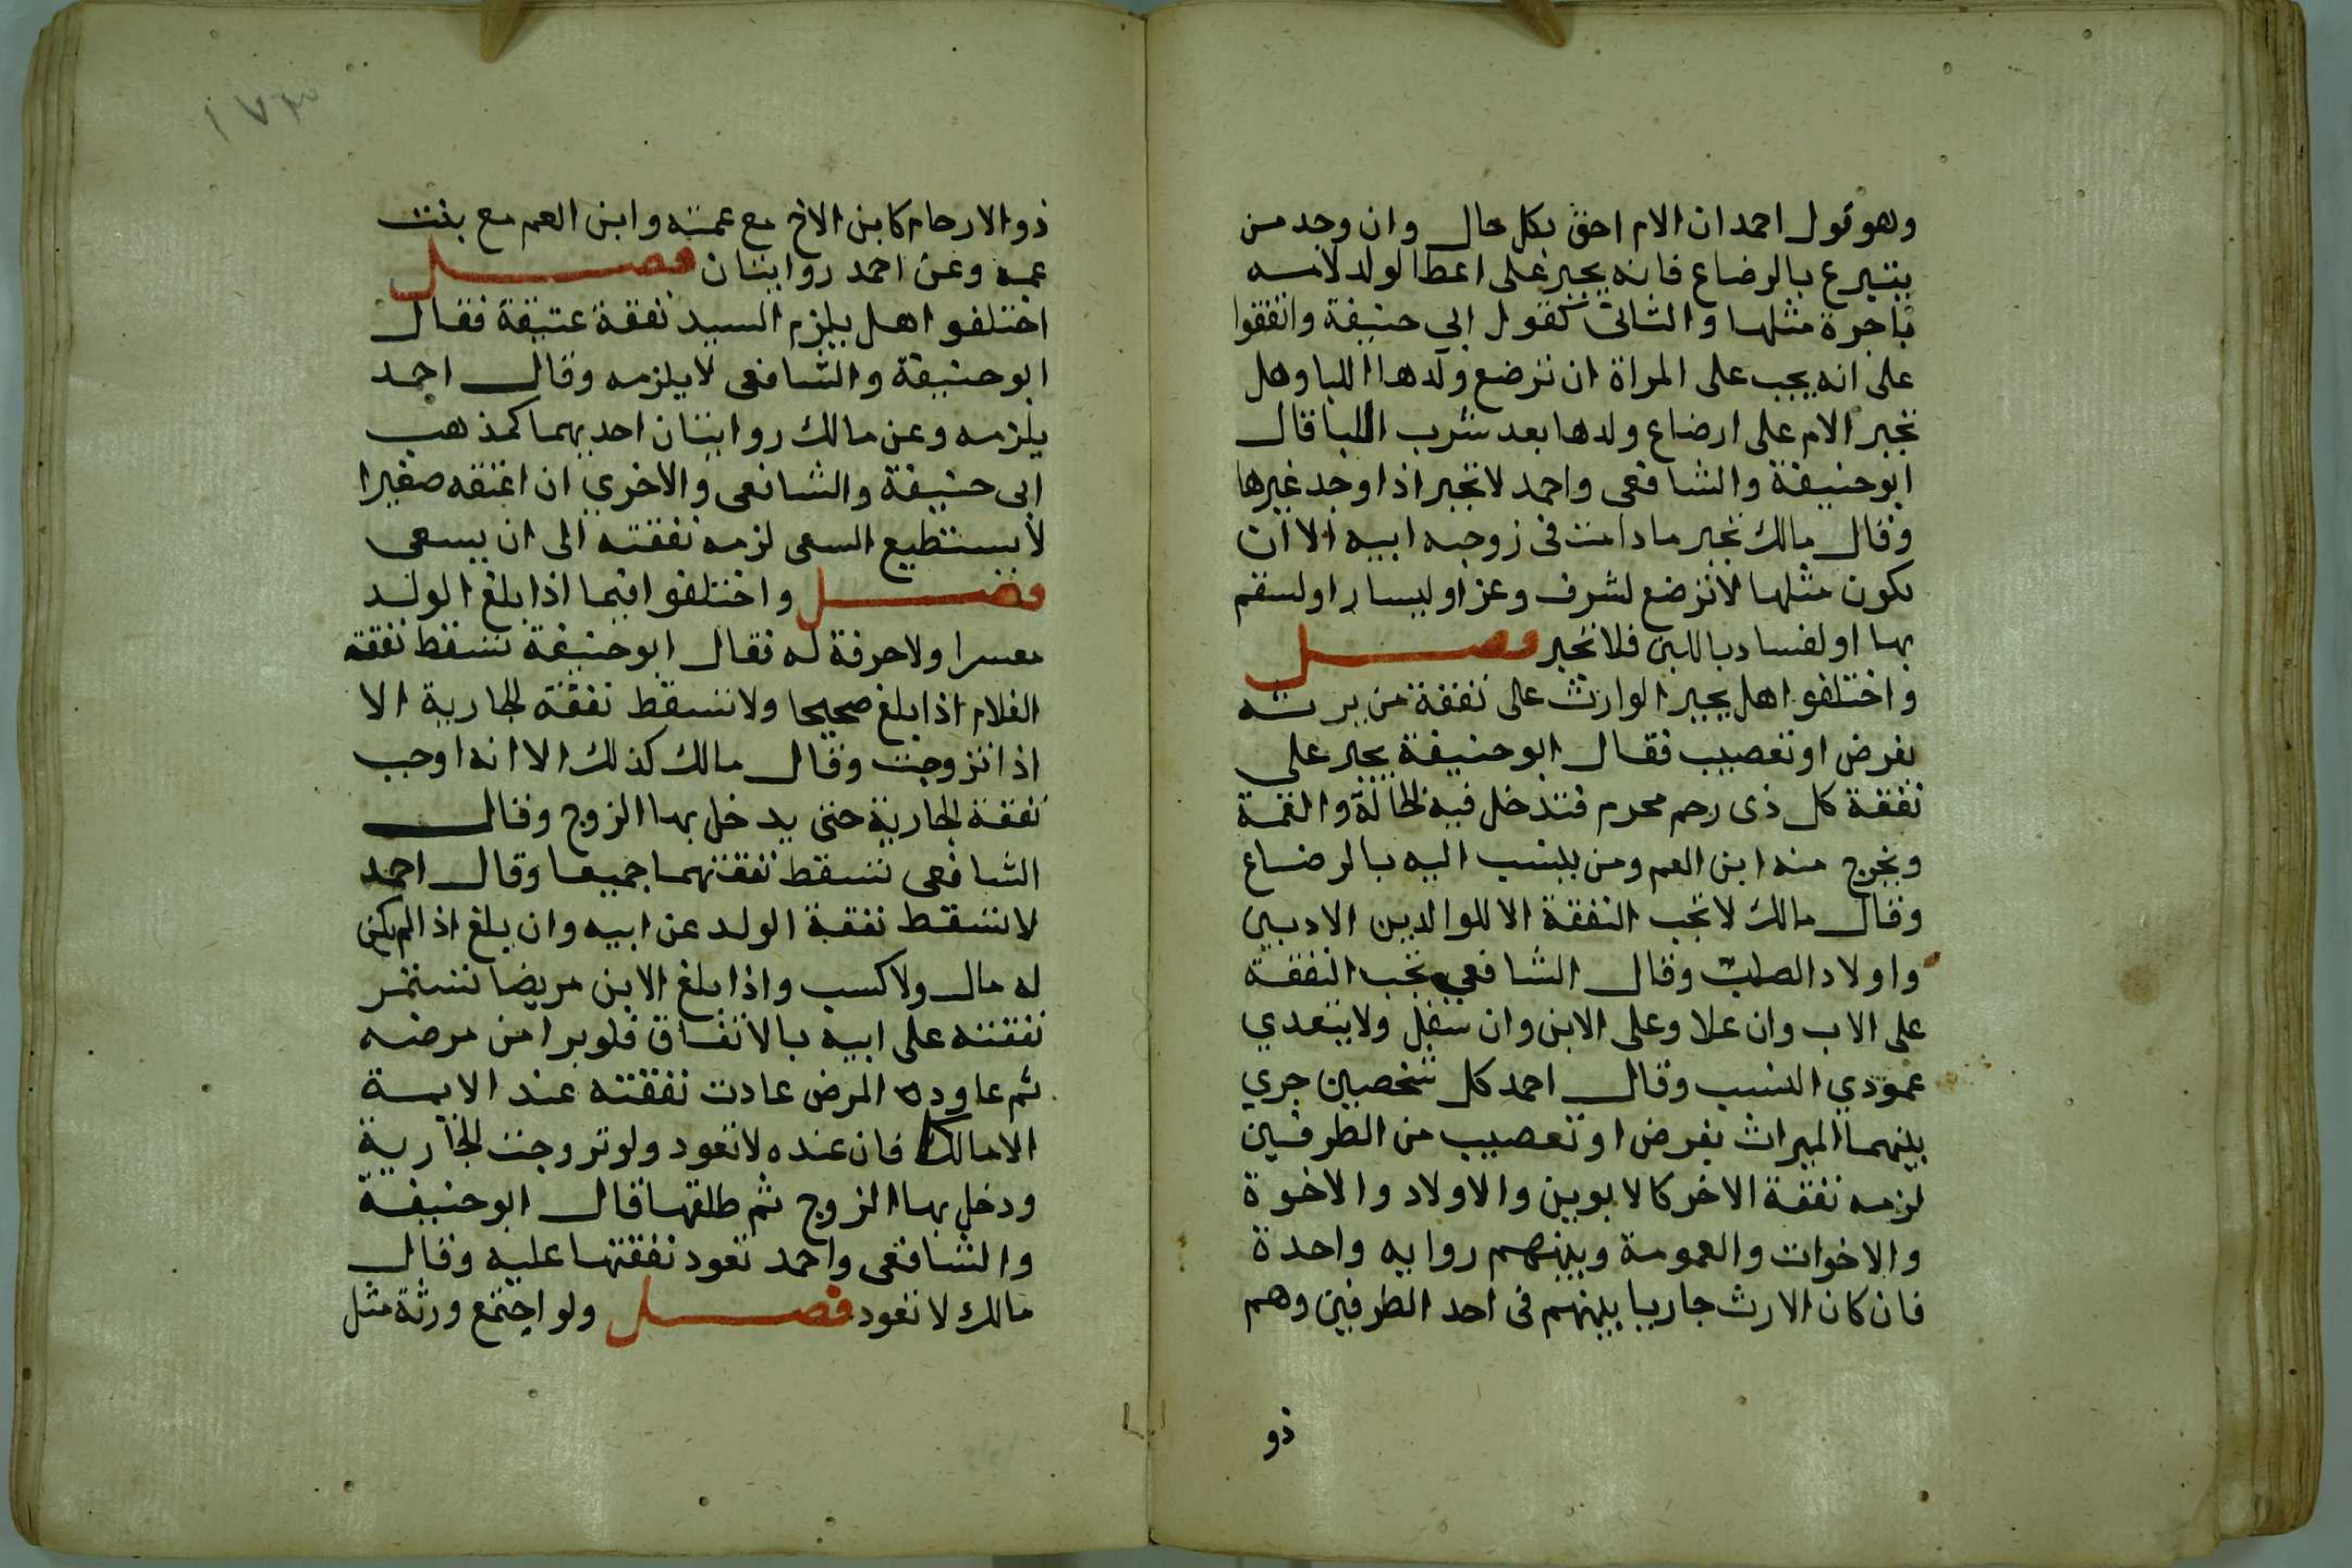 وهو قول احمد ان الام احق بكل حال وان وجد من
يتبرع بالرضاع فانه يجبر على اعطا الولد لامه
باجرة مثلها والثانى كقول ابي حنيفة واتفقوا
على انه يجب على المراة ان ترضع ولدها اللبا وهل
تجبر الام على ارضاع ولدها بعد شرب اللبا قال
ابو حنيفة والشافعى واحمد لا تجبر اذا وجد غيرها
وقال مالك تجبر ما دامت فى زوجيه ابيه الا ان
يكون مثلها لا ترضع لشرف وعز او ليسار او لسقم
بها او لفساد باللبن فلا تجبر فصل
واختلفوا هل يجبر الوارث على نفقة من يرثه
بفرض او تعصيب فقال ابو حنيفة يجبر على
نفقة كل ذى رحم محرم فتدخل فيه الخالة والعمة
ويخرج منه ابن العم ومن ينسب اليه بالرضاع
وقال مالك لا تجب النفقة الا للوالدين الادنين
واولاد الصلب وقال الشافعي تجب النفقة
على الاب وان علا وعلى الابن وان سفل ولا يتعدي
عمودي النسب وقال احمد كل شخصين جري
بينهما الميراث بفرض او تعصيب من الطرفين
لزمه نفقة الاخر كالابوين والاولاد والاخوة
والاخوات والعمومة وبينهم روايه واحدة
فان كان الارث جاريا بينهم فى احد الطرفين وهم
ذو
١٧٣
ذوالارحام كابن الاخ مع عمته وابن العم مع بنت
عمه وعن احمد روايتان فصل
اختلفوا هل يلزم السيد نفقة عتيقة فقال
ابو حنيفة والشافعى لا يلزمه وقال احمد
يلزمه وعن مالك روايتان احديهما كمذهب
ابى حنيفة والشافعى والاخري ان اعتقه صغيرا
لا يستطيع السعى لزمه نفقته الى ان يسعى
فصل واختلفوا فيما اذا بلغ الولد
معسرا ولا حرفة له فقال ابو حنيفة تسقط نفقة
الغلام اذا بلغ صحيحا ولا تسقط نفقة الجارية الا
اذا تزوجت وقال مالك كذلك الا انه اوجب
نفقة الجارية حتى يدخل بها الزوج وقال
الشافعى تسقط نفقتهما جميعا وقال احمد
لا تسقط نفقة الولد عن ابيه وان بلغ اذا لم يكن
له مال ولا كسب واذا بلغ الابن مريضا تستمر
نفقته على ابيه بالاتفاق فلو برا من مرضه
ثم عاوده المرض عادت نفقته عند الايمة
الا مالك فان عنده لا تعود ولو تزوجت الجارية
ودخل بها الزوج ثم طلقها قال ابو حنيفة
والشافعى واحمد تعود نفقتها عليه وقال
مالك لا تعود فصل ولو اجتمع ورثة مثل